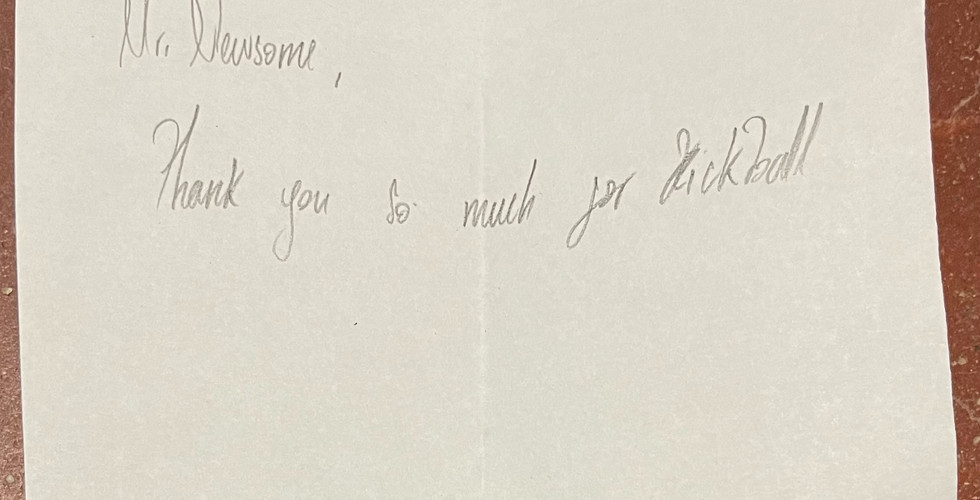 Mr. Newsome,
Thank you so much for Kickball